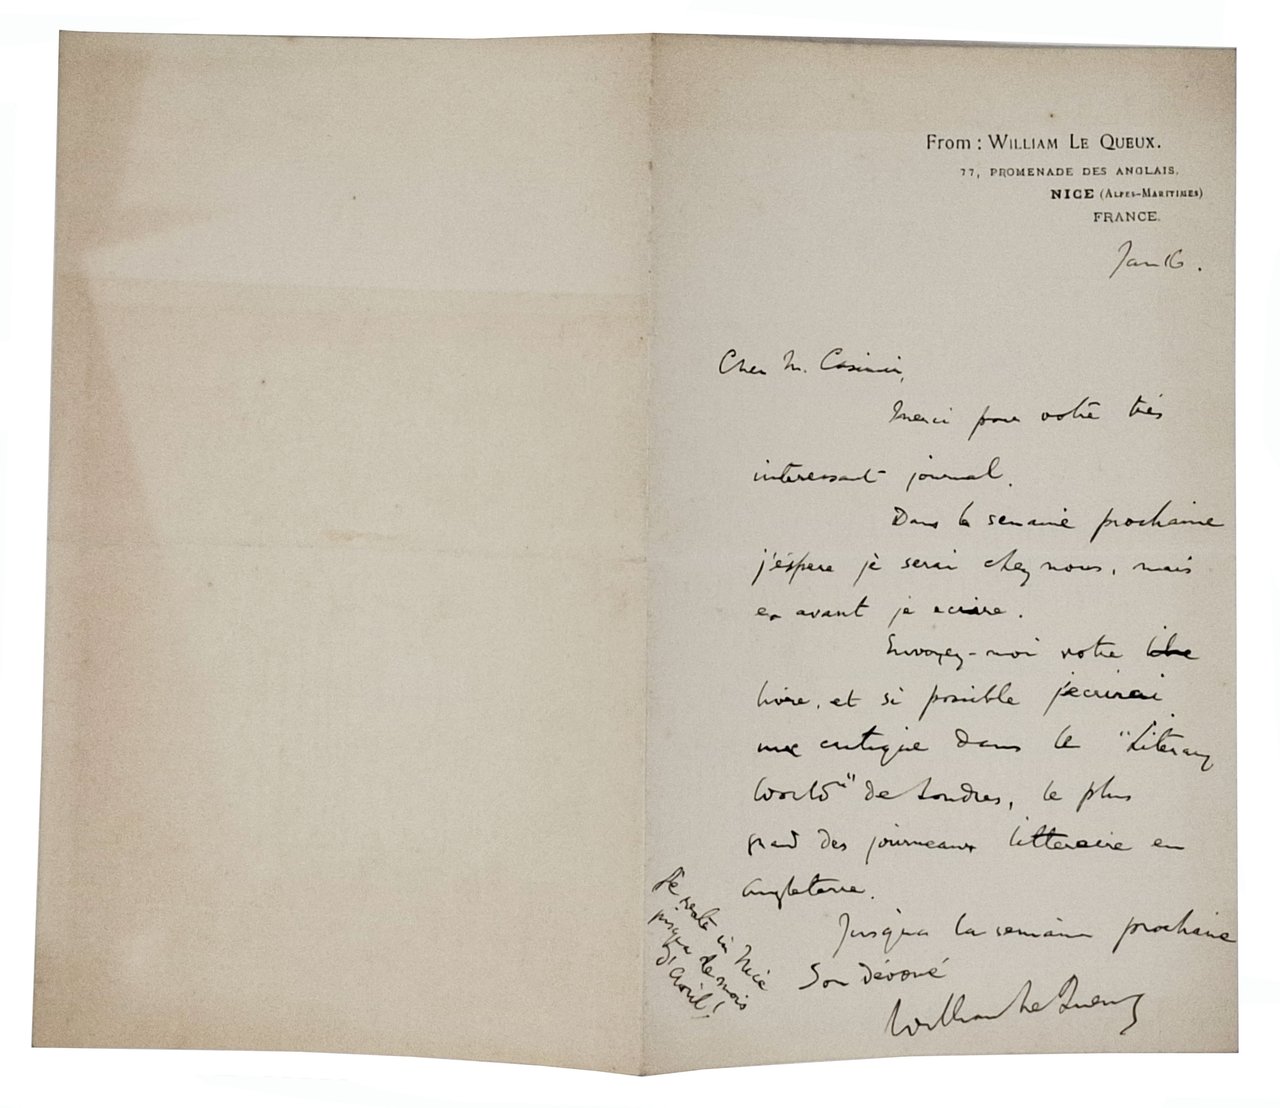 From: WILLIAM LE QUEUX.
77, PROMENADE DES ANGLAIS,
NICE (ALPES-MARITIMES)
FRANCE.
Jan 16.
Cher M. Casimir,
Merci pour votre très
interessant journal.
Dans la semaine prochaine
j'éspere je serai chez nous, mais
en avant je ecrire.
Envoyez-moi votre
livre, et si possible j'ecrirai
une critique dans le "Literary
World" de Londres, le plus
grand des journeaux litteraire en
Angleterre.
Jusqua la semaine prochaine
Son dévoué
William Le Queux
Je reste in Nice
jusqua le mois
d'Avril!